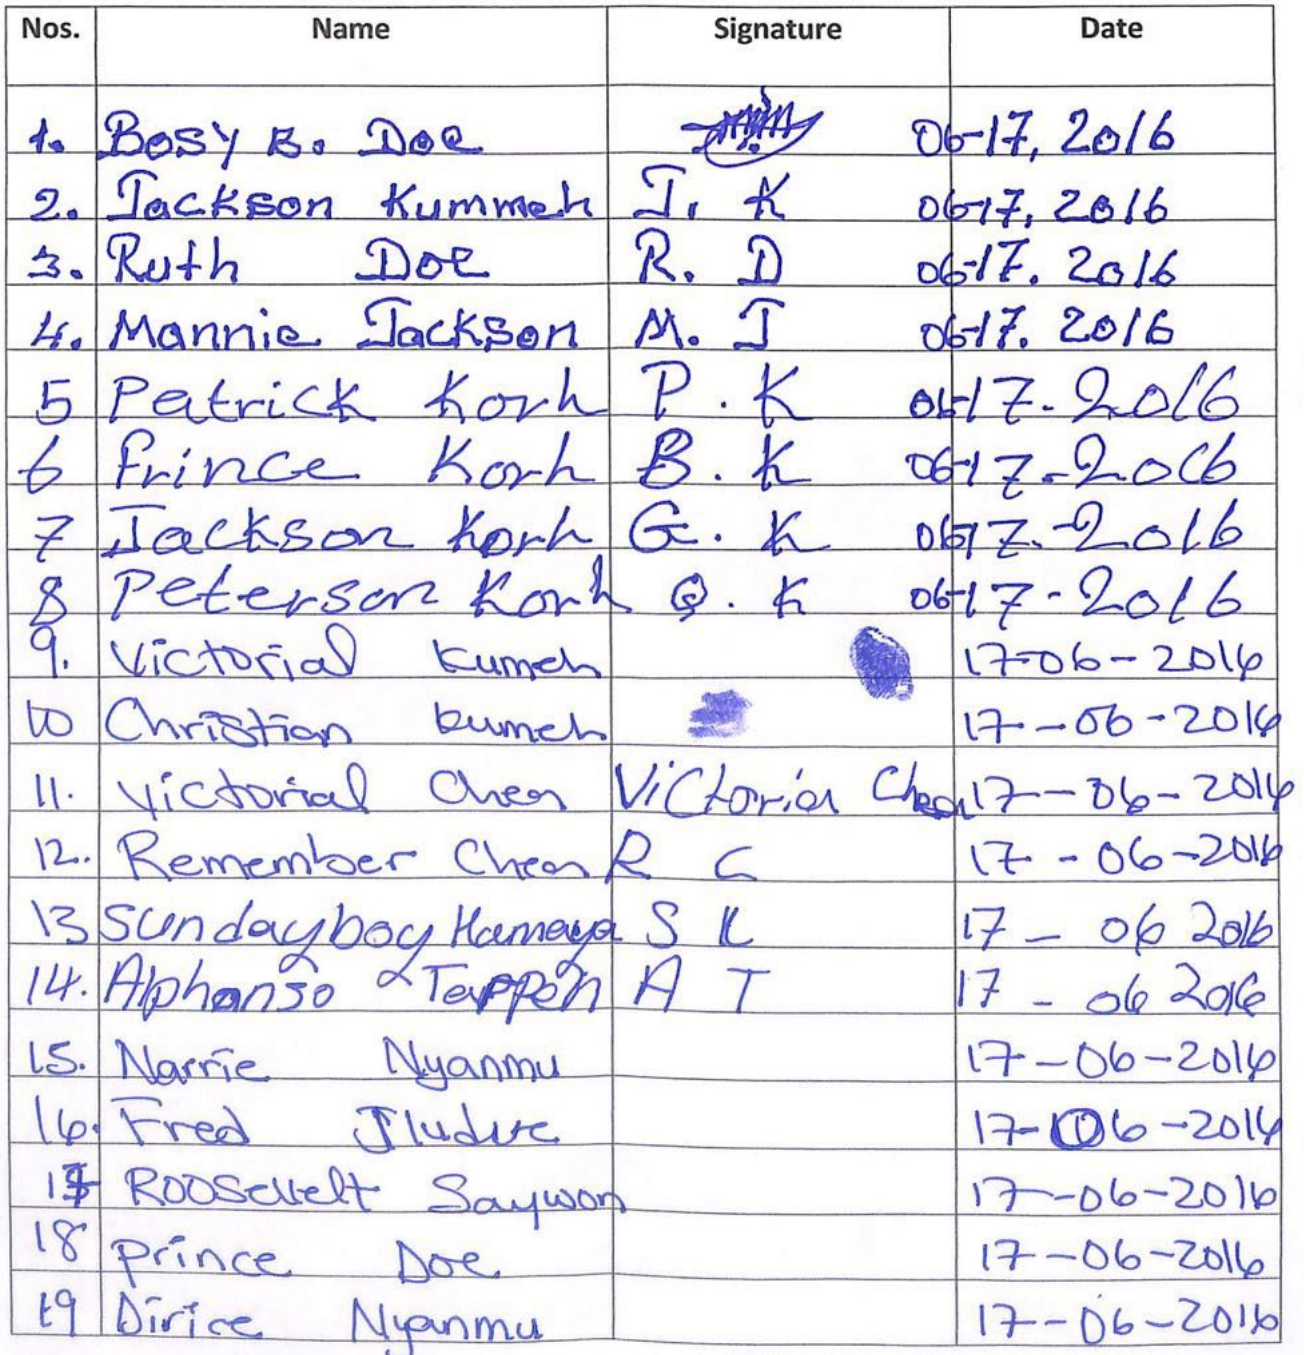 Nos. Name Signature Date
1. Bosy B. Doe 06-17, 2016
2. Jackson Kummeh J. K 06-17, 2016
3. Ruth Doe R. D 06-17. 2016
4. Mannie Jackson M. J 06-17. 2016
5 Patrick Korh P. K 06-17-2016
6 Prince Korh B. K 06-17-2016
7 Jackson Korh G. K 06-17-2016
8 Peterson Korh Q. K 06-17-2016
9. Victorial Kumeh 17-06-2016
10 Christian Kumeh 17-06-2016
11. Victorial Chea Victoria Chea 17-06-2016
12. Remember Chea R C 17-06-2016
13 Sundayboy S K 17-06 2016
14. Alphonso Tarppeh A T 17-06 2016
15. Narrie Nyanmu 17-06-2016
16. Fred 17-06-2016
17 Roosevelt Saywon 17-06-2016
18 Prince Doe 17-06-2016
19 Dirice Nyanmu 17-06-2016